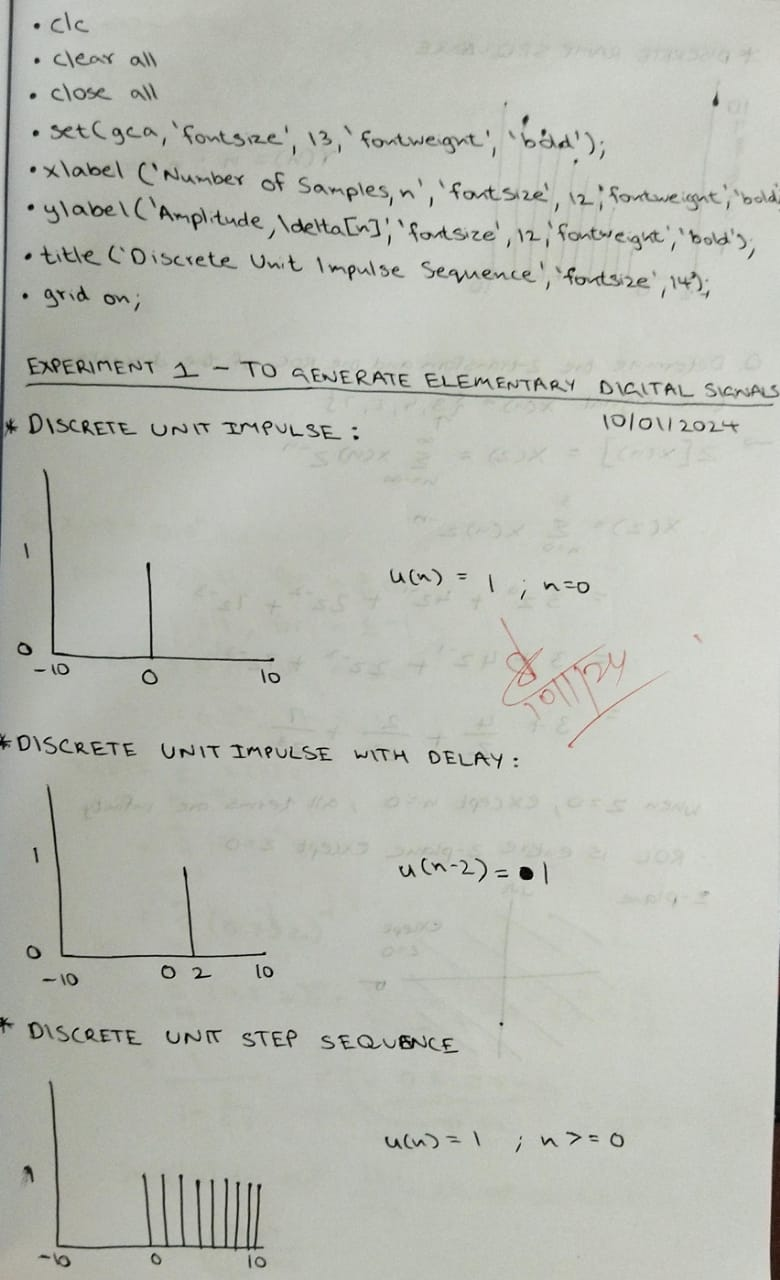 • clc
• clear all
• close all
• set(gca,'fontsize', 13,'fontweight', 'bold');
• xlabel ('Number of Samples,n','fontsize', 12,'fontweight','bold
• ylabel('Amplitude,\delta[n]','fontsize', 12,'fontweight','bold');
• title ('Discrete Unit Impulse Sequence','fontsize', 14);
• grid on;
EXPERIMENT 1 - TO GENERATE ELEMENTARY DIGITAL SIGNALS
10/01/2024
* DISCRETE UNIT IMPULSE :
1
u(n) = 1 ; n=0
0
-10 0 10
10/1/24
* DISCRETE UNIT IMPULSE WITH DELAY :
1
u(n-2) = 1
0
-10 0 2 10
* DISCRETE UNIT STEP SEQUENCE
1
u(n) = 1 ; n >= 0
-10 0 10